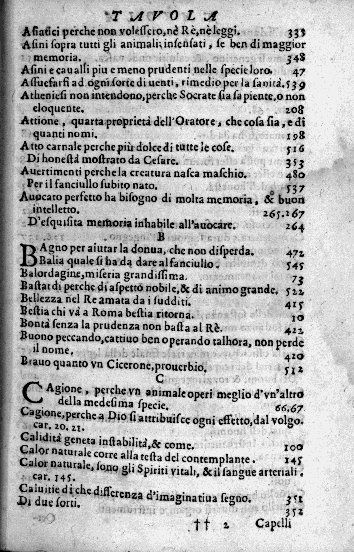 TAVOLA
Asiatici perche non volessero, nè Rè, nè leggi. 333
Asini sopra tutti gli animali, insensati, se ben di maggior
memoria. 348
Asini e caualli piu e meno prudenti nelle specie loro. 47
Assuefarsi ad ogni sorte di uenti, rimedio per la sanità. 539
Atheniesi non intendono, perche Socrate sia sapiente, o non
eloquente. 208
Attione, quarta proprietà dell'Oratore, che cosa sia, e di
quanti nomi. 198
Atto carnale perche più dolce di tutte le cose. 516
Di honestà mostrato da Cesare. 353
Auertimenti perche la creatura nasca maschio. 480
Per il fanciullo subito nato. 537
Auocato perfetto ha bisogno di molta memoria, & buon
intelletto. 265.267
D'esquisita memoria inhabile all'auocare. 264
B
BAgno per aiutar la donna, che non disperda. 472
Balia quale si ha da dare al fanciullo. 545
Balordagine, miseria grandissima. 73
Bastardi perche di aspetto nobile, & di animo grande. 522
Bellezza nel Re amata da i sudditi. 415
Bestia chi và a Roma bestia ritorna. 10
Bontà senza la prudenza non basta al Rè. 422
Buono peccando, cattiuo ben operando talhora, non perde
il nome. 420
Brauo quanto vn Cicerone, prouerbio. 512
C
CAgione, perche vn animale operi meglio d'vn'altro
della medesima specie. 66.67
Cagione, perche a Dio si attribuisce ogni effetto, dal volgo.
car. 20. 21.
Calidità genera instabilità, & come. 100
Calor naturale corre alla testa del contemplante. 145
Calor naturale, sono gli Spiriti vitali, & il sangue arteriali.
car. 145.
Caluitie di che differenza d'imaginatiua segno. 351
Di due sorti. 352
†† 2 Capelli